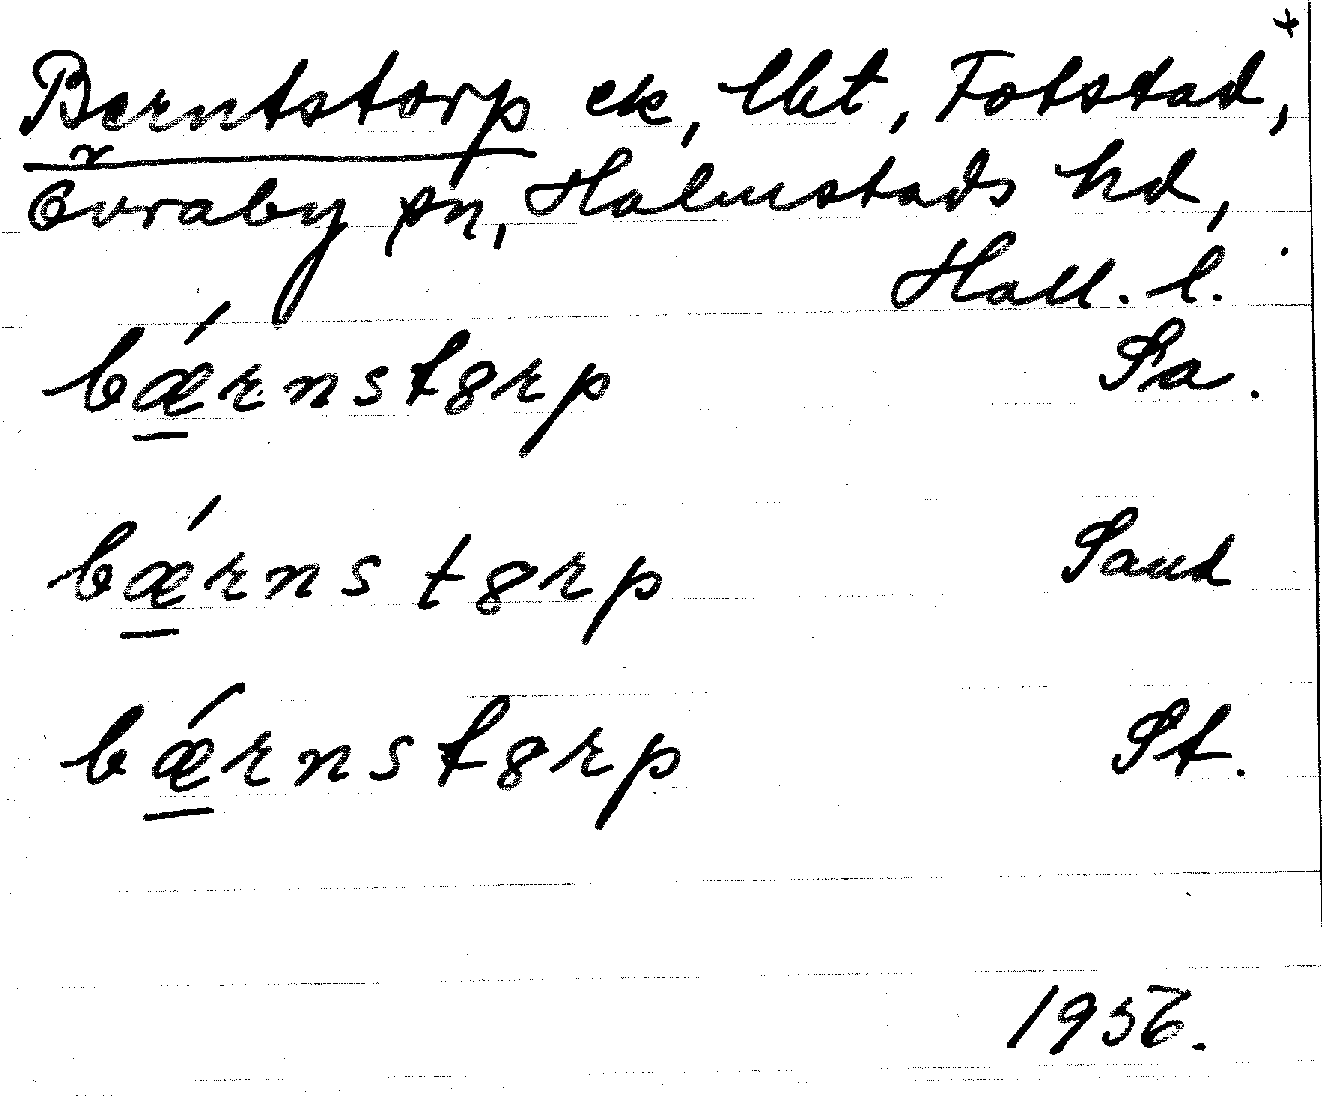 Berntstorp ek, lht, Fotstad,
Övraby sn, Halmstads hd,
Hall. l.
bǽrnstȣrp Sa.
bǽrnstȣrp Sand
bǽrnstȣrp St.
1956.